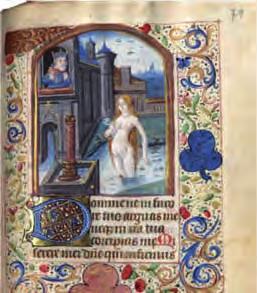 79
Domine ne in furo
re tuo arguas me
neq; in ira tua
corripias me M
serere mei dñe quoniam